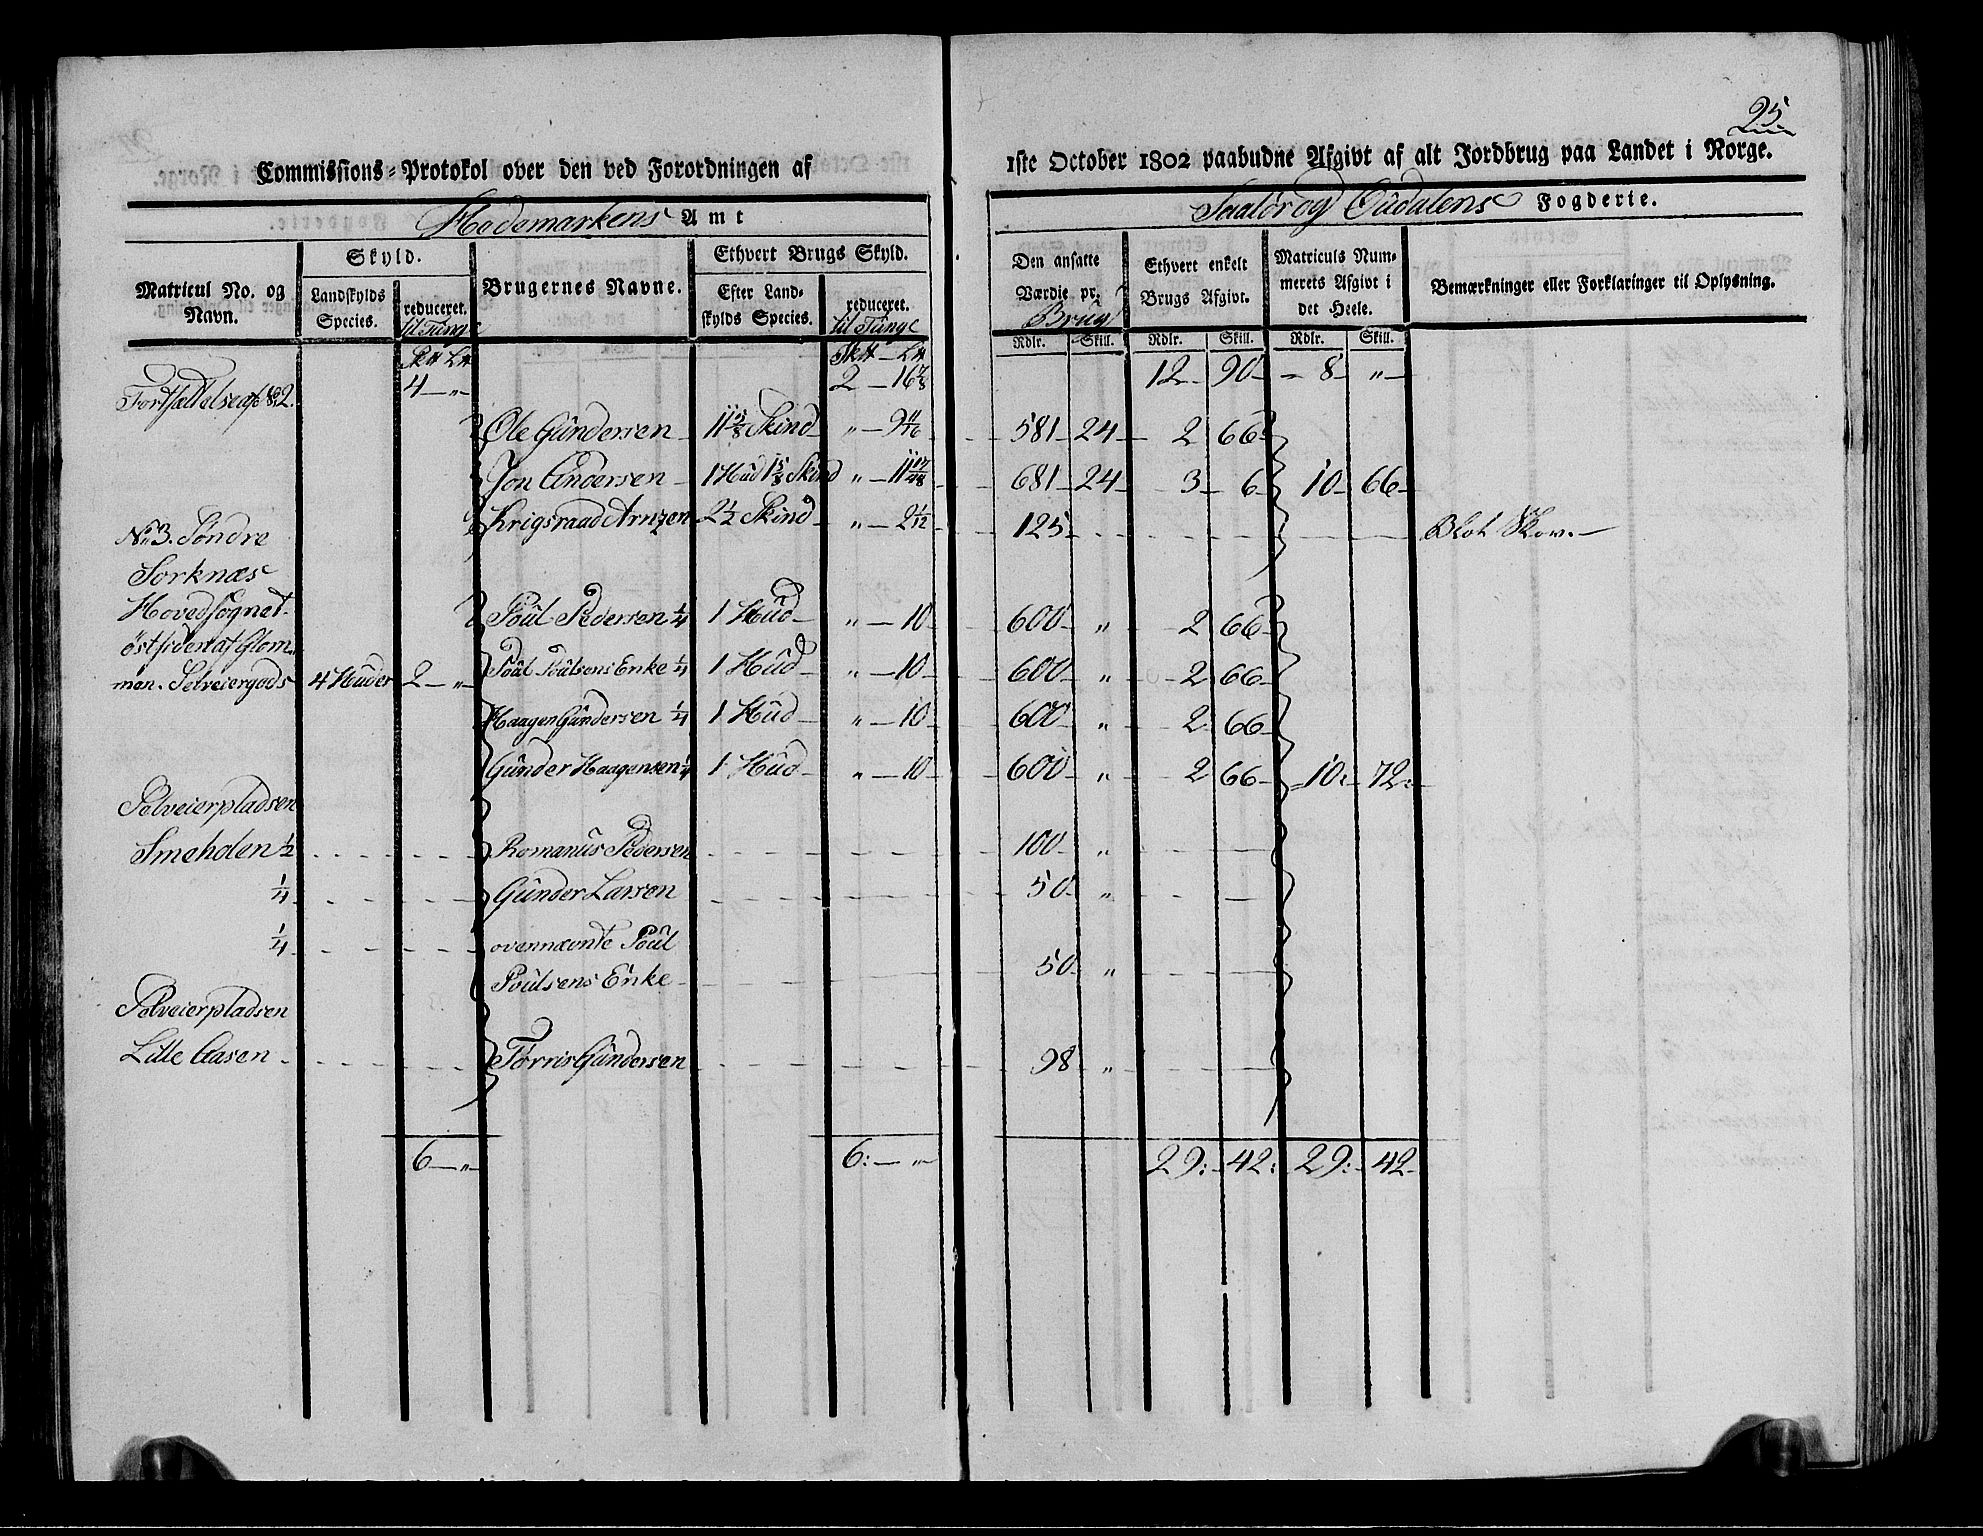 25
Commissions-Protokol over den ved Forordningen af 1ste October 1802 paabudne Afgivt af alt Jordbrug paa Landet i Norge.
Hedemarkens Amt
Saalör og Oudalens Fogderie.
Matricul No. og Navn.
Skyld.
Landskylds Species.
reduceret. til Tunge
Brugernes Navne.
Ethvert Brugs Skyld.
Efter Landskylds Species.
reduceret. til Tunge
Den ansatte Værdie pr. Brug
Ethvert enkelt Brugs Afgivt.
Matriculs Nummerets Afgivt i det Heele.
Bemærkninger eller Forklaringer til Oplysning.
Rdlr. Skill. Rdlr. Skill. Rdlr. Skill.
Fortsættelse af No 2. 4 — " 2 — 16 7/8 12 — 90 — 8 — "
Ole Gundersen 11 5/8 Skind " — 9 11/16 581 24 2 66
Jon Andersen 1 Hud 1 5/8 Skind " — 11 17/48 681 24 3 6 10 66
Krigsraad Arnzen 2 1/2 Skind " — 2 1/12 125 Blot Skov.
No 3. Söndre
Sorknæs
Hovedsognet
östsiden af Glom-
men. Selveiergods 4 Huder 2 — "
Poul Pedersen 1/4 1 Hud " — 10 600 " 2 66
Poul Poulsens Enke 1/4 1 Hud " — 10 600 " 2 66
Haagen Gundersen 1/4 1 Hud " — 10 600 " 2 66
Gunder Haagensen 1/4 1 Hud " — 10 600 " 2 66 10 72
Selveierpladsen
Smeholen 1/2 Romanus Pedersen 100 "
1/4 Gunder Larsen 50 "
1/4 ovennævnte Poul
Poulsens Enke 50 "
Selveierpladsen
Lille Aasen Torris Gundersen 98 "
6 — " 6 — " 29 42 29 42